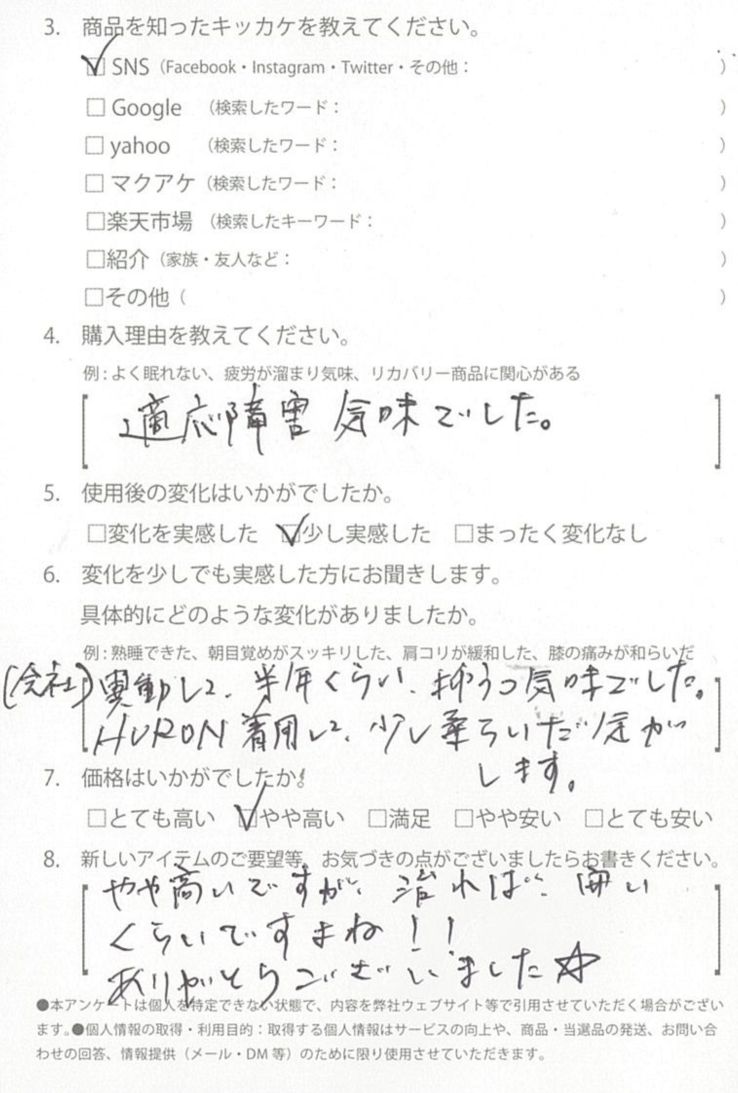 3. 商品を知ったキッカケを教えてください。
☑ SNS（Facebook・Instagram・Twitter・その他： ）
□ Google （検索したワード： ）
□ yahoo （検索したワード： ）
□ マクアケ（検索したワード： ）
□楽天市場 （検索したキーワード： ）
□紹介（家族・友人など： ）
□その他（ ）
4. 購入理由を教えてください。
例：よく眠れない、疲労が溜まり気味、リカバリー商品に関心がある
適応障害 気味でした。
5. 使用後の変化はいかがでしたか。
□変化を実感した ☑少し実感した □まったく変化なし
6. 変化を少しでも実感した方にお聞きします。
具体的にどのような変化がありましたか。
例：熟睡できた、朝目覚めがスッキリした、肩コリが緩和した、膝の痛みが和らいだ
(会社)異動して、半年くらい、抑うつ気味でした。
HURON着用して、少し柔らいだ気が
します。
7. 価格はいかがでしたか。
□とても高い ☑やや高い □満足 □やや安い □とても安い
8. 新しいアイテムのご要望等、お気づきの点がございましたらお書きください。
やや高いですが、治れば、安い
くらいですまね！！
ありがとうございました☆
●本アンケートは個人を特定できない状態で、内容を弊社ウェブサイト等で引用させていただく場合がござい
ます。●個人情報の取得・利用目的：取得する個人情報はサービスの向上や、商品・当選品の発送、お問い合
わせの回答、情報提供（メール・DM 等）のために限り使用させていただきます。